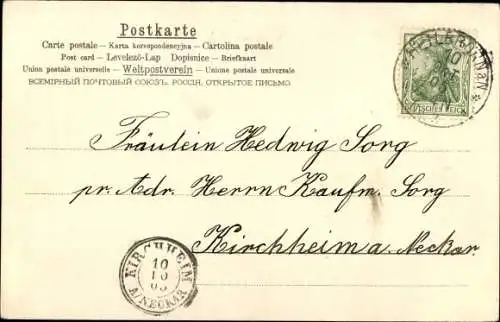 Postkarte
Carte postale – Karta korespondencyjna – Cartolina postale
Post card – Levelező-Lap Dopisnice – Briefkaart
Union postale universelle – Weltpostverein – Unione postale universale
ВСЕМІРНЫЙ ПОЧТОВЫЙ СОЮЗЪ. РОССІЯ. ОТКРЫТОЕ ПИСЬМО
Fräulein Hedwig Sorg
pr. Adr. Herrn Kaufm. Sorg
Kirchheim a. Neckar.
KIRCHHEIM
10
10
A/NECKAR